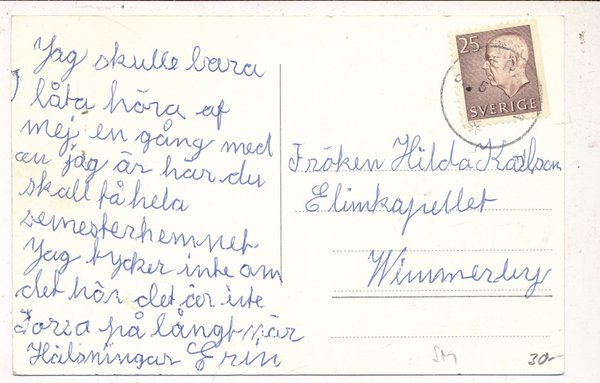 Jag skulle bara
låta höra af
mej en gång med
an jag är här du
skall få hela
semesterhemmet
Jag tycker inte om
det här det är iste
på långt när
Hälsningar Erin
25
SVERIGE
Fröken Hilda Karlson
Elimkapellet
Wimmerby
30-